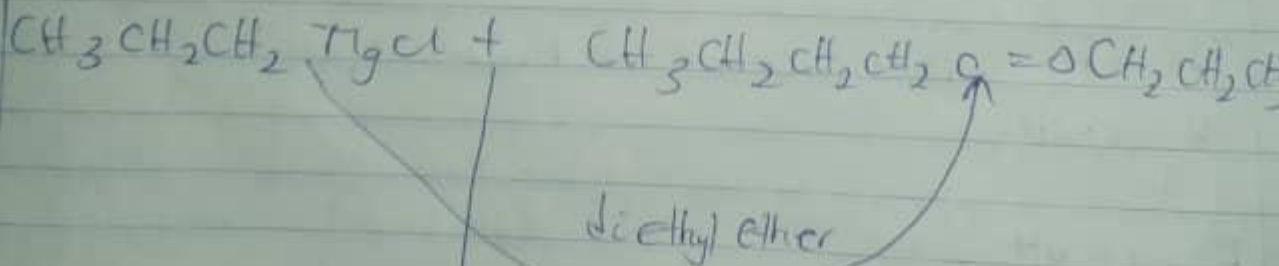 CH₃CH₂CH₂MgCl + CH₃CH₂CH₂CH₂C=OCH₂CH₂CH
diethyl ether